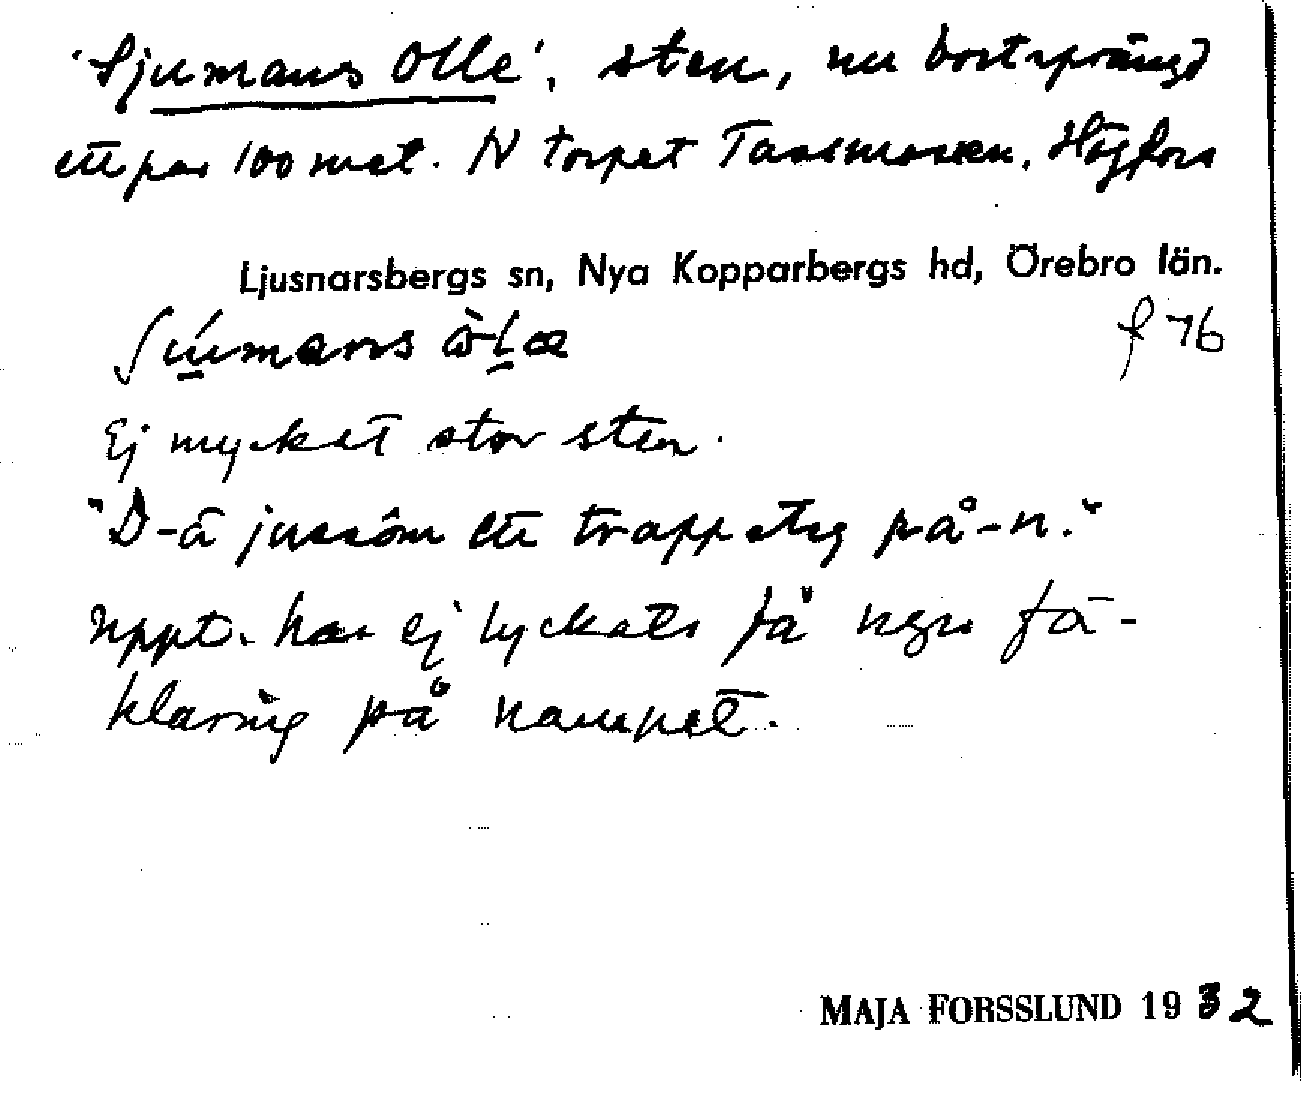 'Sjumans Olle', sten, nu bortsprängd
ett par 100 met. N torpet Högfors
Ljusnarsbergs sn, Nya Kopparbergs hd, Örebro län.
f 76
Ej mycket stor sten.
"D-ä jussôm ett trappsteg på-n."
Uppt. har ej lyckats få ngn fö-
klaring på namnet.
MAJA FORSSLUND 1932